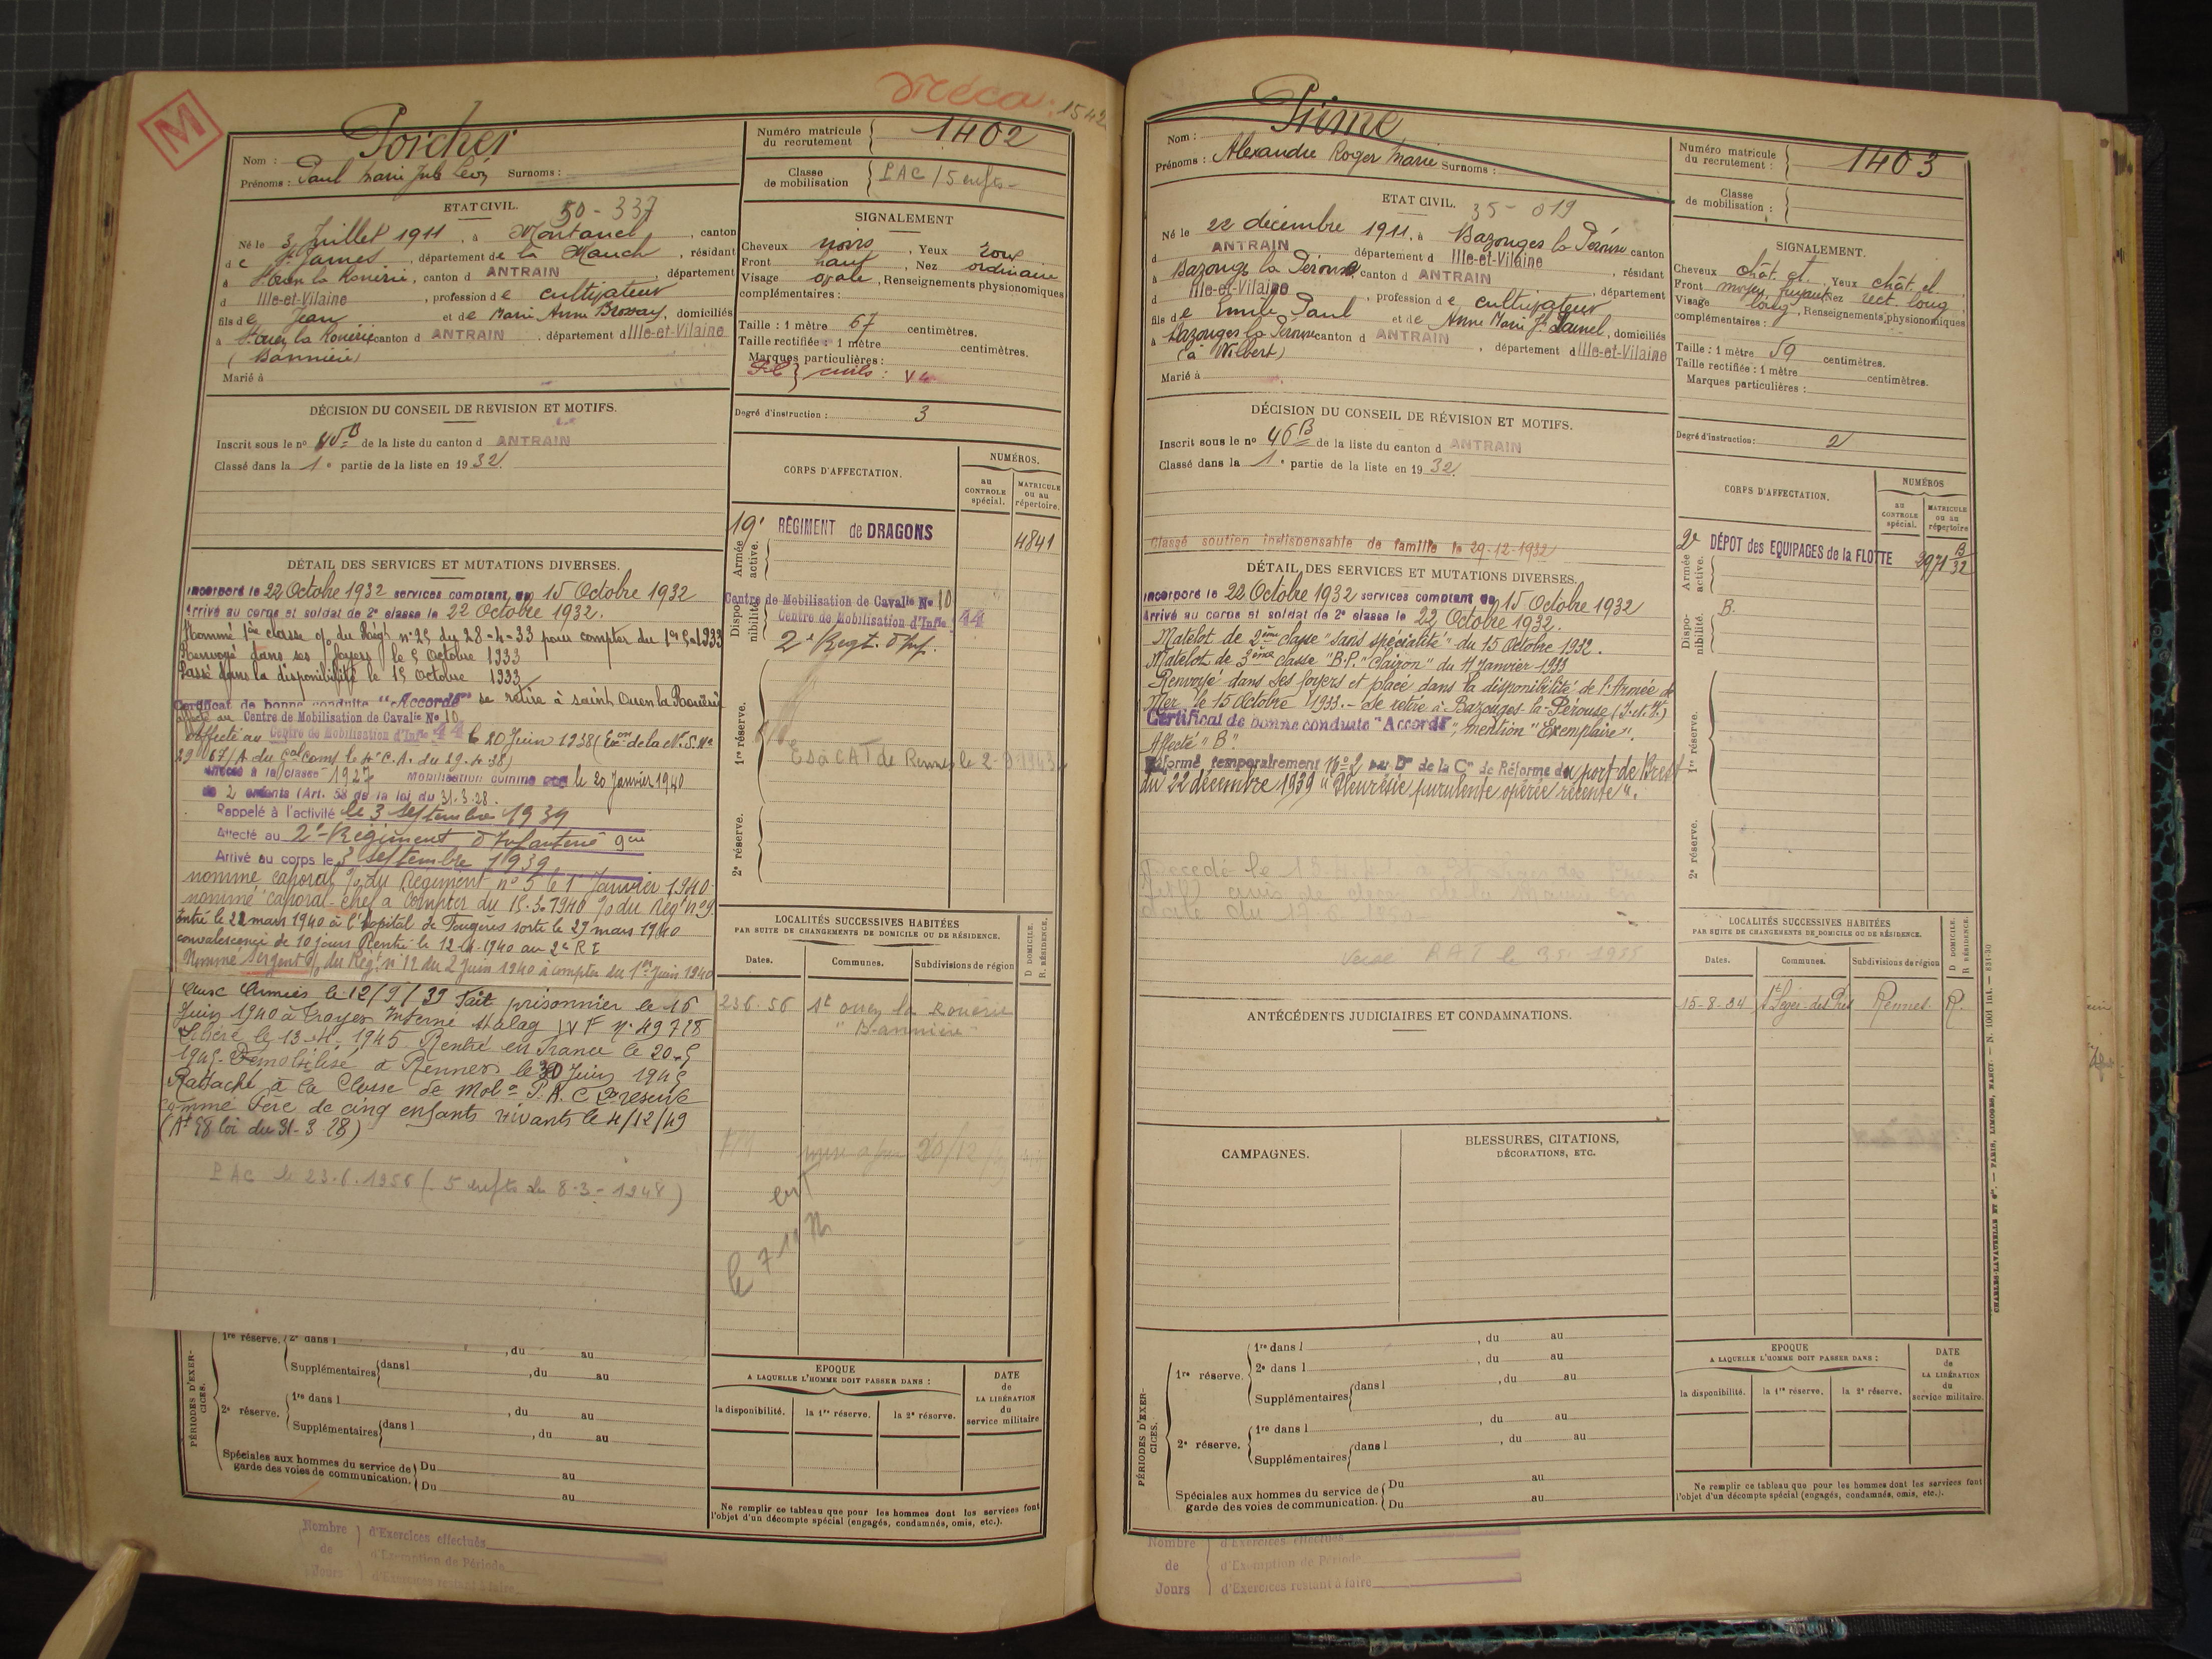 M
1542
Porcher
Nom :
Prénoms : Paul Marie Surnoms :
Numéro matricule
du recrutement
1402
Classe
de mobilisation
PAC / 5 enfts -
ETAT CIVIL.
50 - 337
Né le 3 Juillet 1911, à Montanel, canton
de St James, département de la Manche, résidant
à St Ouen la Rouërie, canton d ANTRAIN, département
d Ille-et-Vilaine, profession de cultivateur
fils de Jean et de Marie Anne Brossay, domiciliés
à St Ouen la Rouërie canton d ANTRAIN, département d Ille-et-Vilaine
(Bannière)
Marié à
SIGNALEMENT
Cheveux noirs, Yeux roux
Front haut, Nez ordinaire
Visage ovale, Renseignements physionomiques
complémentaires :
Taille : 1 mètre 67 centimètres.
Taille rectifiée : 1 mètre centimètres.
Marques particulières :
civils :
Degré d'instruction : 3
DÉCISION DU CONSEIL DE REVISION ET MOTIFS.
Inscrit sous le no de la liste du canton d ANTRAIN
Classé dans la 1e partie de la liste en 1932.
CORPS D'AFFECTATION.
NUMÉROS.
au
CONTROLE
spécial.
MATRICULE
ou au
répertoire.
Armée
active.
19e RÉGIMENT de DRAGONS
4841
Dispo-
nibilité.
Centre de Mobilisation de Cavalie No 10
Centre de Mobilisation d'Infie 44
2e Regt. d'Inf.
1re réserve.
CAT de Rennes le
2e réserve.
DÉTAIL DES SERVICES ET MUTATIONS DIVERSES.
Incorporé le 22 Octobre 1932 services comptant du 15 Octobre 1932
Arrivé au corps et soldat de 2e classe le 22 Octobre 1932.
Nommé 1ère classe o/o du Régt no 25 du 28-4-33 pour compter du 1er 5-1933
Renvoyé dans ses foyers le 5 Octobre 1933
Passé dans la disponibilité le 15 Octobre 1933
Certificat de bonne conduite "Accordé" se retire à saint Ouen la Rouërie
Affecté au Centre de Mobilisation de Cavalie No 10
Affecté au Centre de Mobilisation d'Infie 44 le 20 Juin 1938 (Exon de la N.S. No
2967/A du Gal Comt le 4e C.A. du 29.4.38)
à la classe 1927 Mobilisation comme père le 20 Janvier 1940
de 2 enfants (Art. 58 de la loi du 31.3.28.
Rappelé à l'activité le 3 septembre 1939
Affecté au 2e Régiment d'Infanterie
Arrivé au corps le 3 septembre 1939
nommé caporal o/o du Régiment no 5 le 1er Janvier 1940
nommé caporal-chef à compter du 15.3.1940 o/o du Régt no 9.
Entré le 22 mars 1940 à l'hôpital de Fougères sorti le 27 mars 1940
convalescence de 10 jours Rentré le 12-4-1940 au 2e R I
Nommé Sergent o/o du Régt no 12 du 2 Juin 1940 à compter du 1er Juin 1940
Armées le 12/9/39 Fait prisonnier le 15
Juin 1940 à Troyes Interné Stalag IV F no 49718
Libéré le 13-4-1945 Rentré en France le 20.5
1945. Démobilisé à Rennes le 30 Juin 1945
Rattaché à la Classe de Mole P.A.C 2e réserve
comme Père de cinq enfants vivants le 4/12/49
(At 58 loi du 31-3-28)
PAC le 23.6.1956 (5 enfts du 8-3-1948)
LOCALITÉS SUCCESSIVES HABITÉES
PAR SUITE DE CHANGEMENTS DE DOMICILE OU DE RÉSIDENCE.
D DOMICILE.
R RÉSIDENCE.
Dates.
Communes.
Subdivisions de région
23.6.56 St ouen la Rouërie
"Bannière"
PÉRIODES D'EXER-
CICES.
1re réserve. 2e dans l , du au
Supplémentaires dans l , du au
2e réserve. 1re dans l , du au
Supplémentaires dans l , du au
Spéciales aux hommes du service de Du au
garde des voies de communication. Du au
EPOQUE
A LAQUELLE L'HOMME DOIT PASSER DANS :
DATE
de
LA LIBÉRATION
du
service militaire
la disponibilité.
la 1re réserve.
la 2e réserve.
Ne remplir ce tableau que pour les hommes dont les services font
l'objet d'un décompte spécial (engagés, condamnés, omis, etc.).
Nombre d'Exercices effectués
de d'Exemption de Période
Jours d'Exercices restant à faire
Prime
Nom :
Prénoms : Alexandre Roger Marie Surnoms :
Numéro matricule
du recrutement :
1403
Classe
de mobilisation :
ETAT CIVIL.
35 - 019
Né le 22 décembre 1911, à Bazouges la Pérouse canton
d ANTRAIN département d Ille-et-Vilaine, résidant
à Bazouges la Pérouse canton d ANTRAIN, département
d Ille-et-Vilaine, profession de cultivateur
fils de Emile Paul et de Anne Marie Jh, domiciliés
à Bazouges la Pérouse canton d ANTRAIN, département d Ille-et-Vilaine
(à Vilbert)
Marié à
SIGNALEMENT.
Cheveux chât. ct, Yeux chât. cl
Front moyen fuyant Nez rect. long
Visage long, Renseignements physionomiques
complémentaires :
Taille : 1 mètre 59 centimètres.
Taille rectifiée : 1 mètre centimètres.
Marques particulières :
Degré d'instruction : 2
DÉCISION DU CONSEIL DE RÉVISION ET MOTIFS.
Inscrit sous le no 46 B de la liste du canton d ANTRAIN
Classé dans la 1e partie de la liste en 1932.
Classé soutien indispensable de famille le 29-12-1932
CORPS D'AFFECTATION.
NUMÉROS
au
CONTROLE
spécial.
MATRICULE
ou au
répertoire
Armée
active.
2e DÉPOT des EQUIPAGES de la FLOTTE
3971 B
32
Dispo-
nibilité.
B.
1re réserve.
2e réserve.
DÉTAIL DES SERVICES ET MUTATIONS DIVERSES.
Incorporé le 22 Octobre 1932 services comptant du 15 Octobre 1932
Arrivé au corps et soldat de 2e classe le 22 Octobre 1932.
Matelot de 2ème classe "sans spécialité" du 15 Octobre 1932.
Matelot de 3ème classe "B.P." Clairon" du 11 Janvier 1933
Renvoyé dans ses foyers et placé dans la disponibilité de l'Armée de
Mer le 15 Octobre 1933. - Se retire à Bazouges-la-Pérouse (I.-et-V.)
Certificat de bonne conduite "Accordé", mention "Exemplaire".
Affecté "B".
Réformé temporairement No 2 par Don de la Con de Réforme du port de Brest
du 22 décembre 1939 "Pleurésie purulente opérée récente".
Décédé le
avis de décès de la Mairie en
date du
Versé R.A.T le
ANTÉCÉDENTS JUDICIAIRES ET CONDAMNATIONS.
CAMPAGNES.
BLESSURES, CITATIONS,
DÉCORATIONS, ETC.
LOCALITÉS SUCCESSIVES HABITÉES
PAR SUITE DE CHANGEMENTS DE DOMICILE OU DE RÉSIDENCE.
D DOMICILE.
R RÉSIDENCE.
Dates.
Communes.
Subdivisions de région
15-8-34 St Léger-des-Prés Rennes R.
PÉRIODES D'EXER-
CICES.
1re réserve. 1re dans l , du au
2e dans l , du au
Supplémentaires dans l , du au
2e réserve. 1re dans l , du au
Supplémentaires dans l , du au
Spéciales aux hommes du service de Du au
garde des voies de communication. Du au
EPOQUE
A LAQUELLE L'HOMME DOIT PASSER DANS :
DATE
de
LA LIBÉRATION
du
service militaire.
la disponibilité.
la 1re réserve.
la 2e réserve.
Ne remplir ce tableau que pour les hommes dont les services font
l'objet d'un décompte spécial (engagés, condamnés, omis, etc.).
Nombre d'Exercices effectués
de d'Exemption de Période
Jours d'Exercices restant à faire
CHARLES-LAVAUZELLE ET Cie. — PARIS, LIMOGES, NANCY. — N. 1001 int. — 831-30